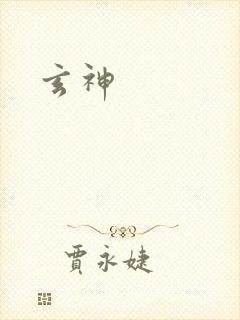 玄神
賈永婕